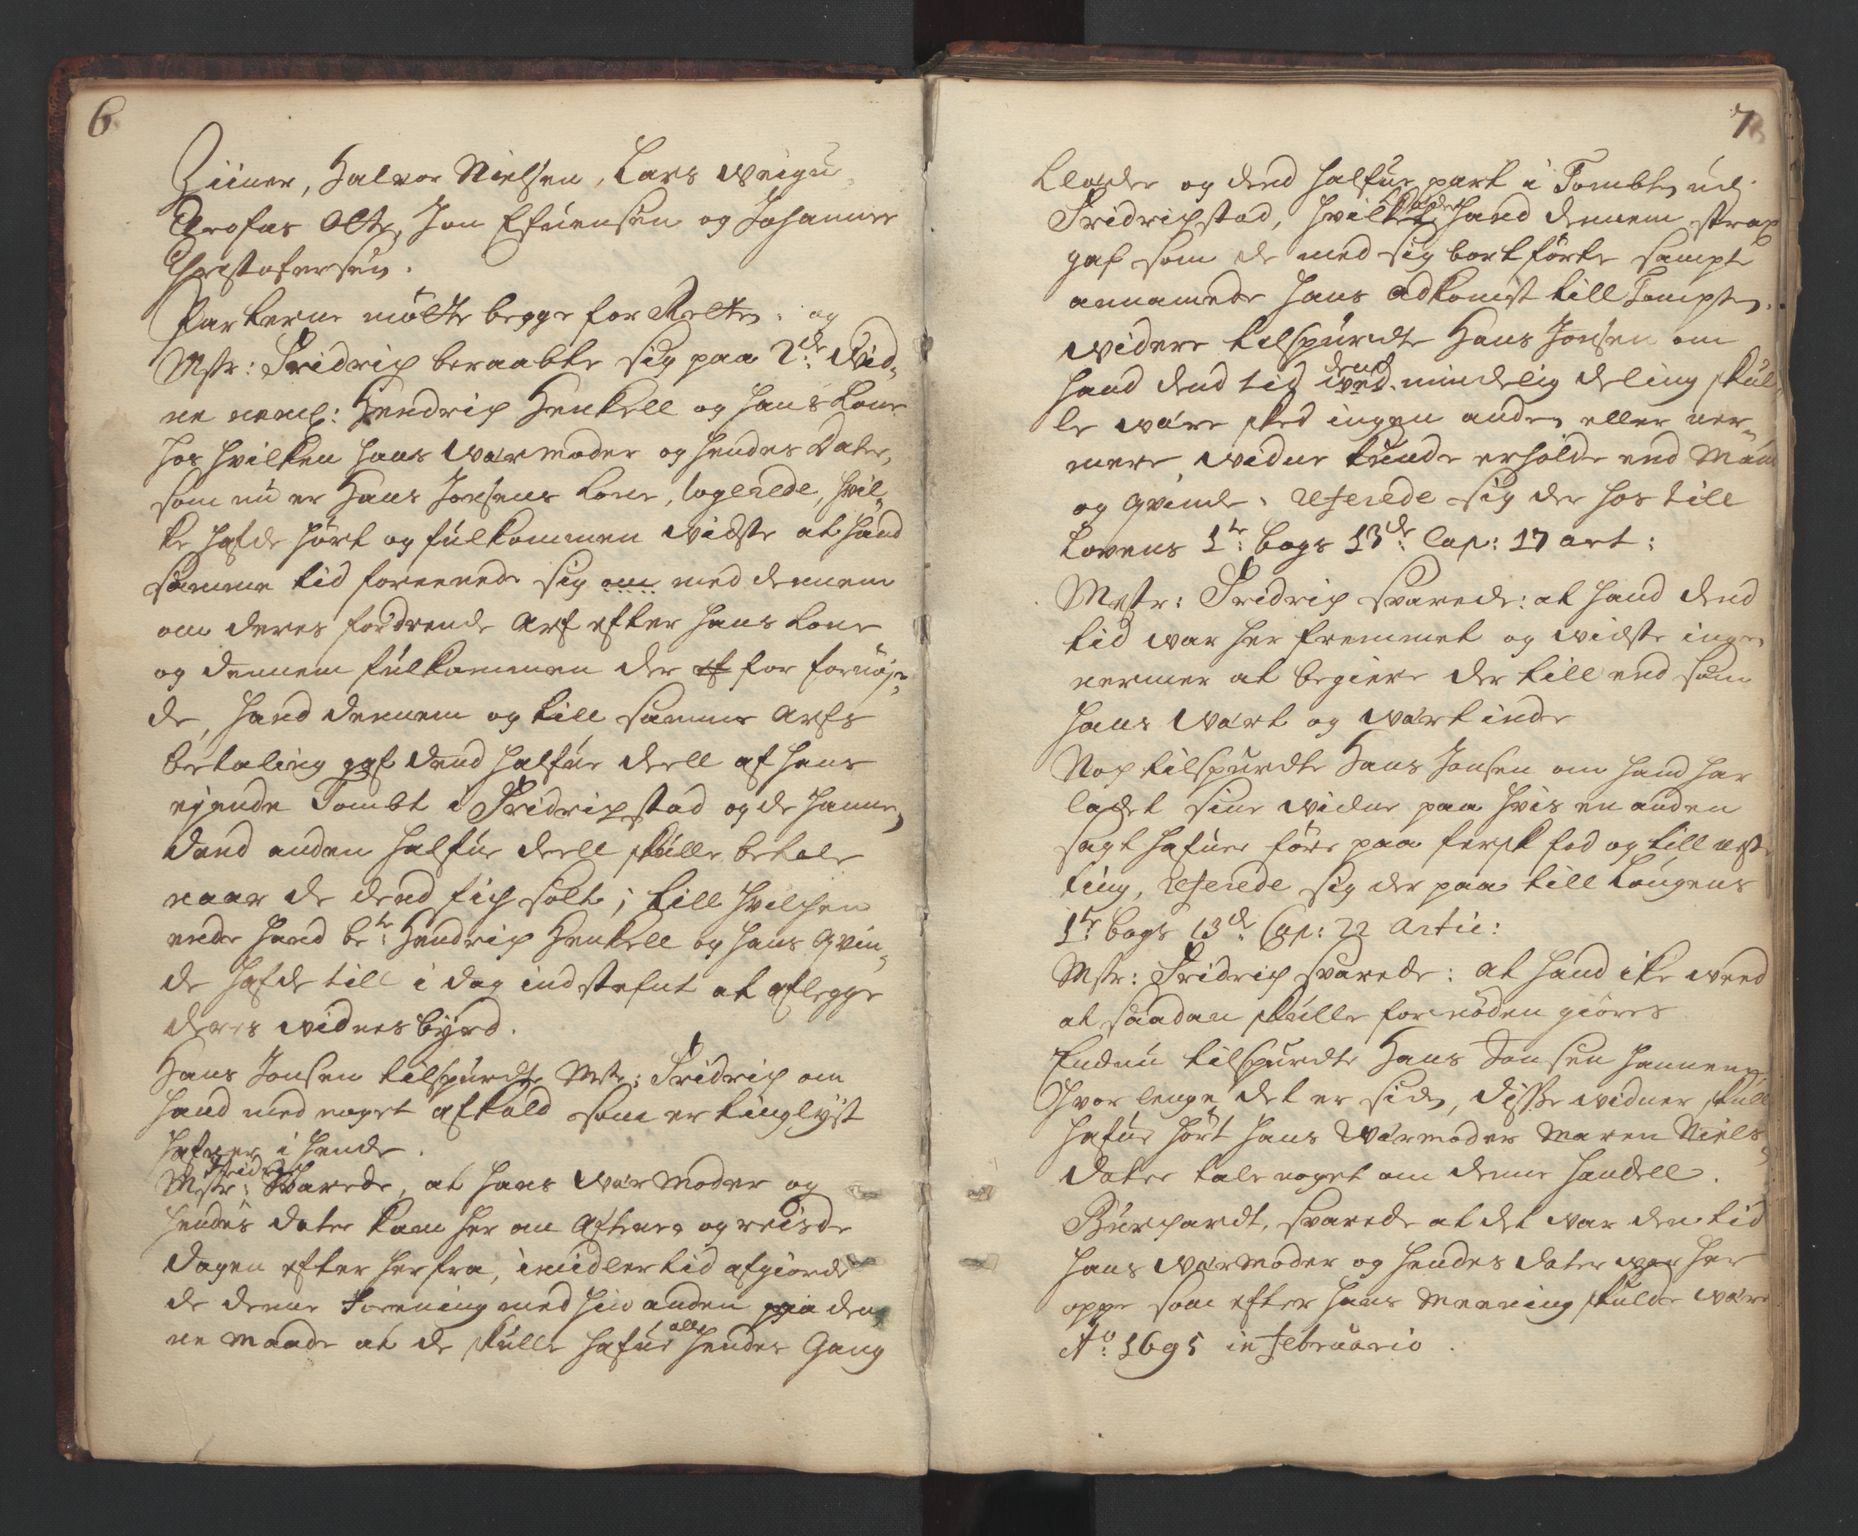 6
Ziiner, Halvor Nielsen, Lars
Olte, Jon Efuensen og Johannes
Christofersen.
Parterne mötte begge for Retten. og
Mstr: Fridrich beraabte sig paa 2de: Vid-
ne neml: Hendrip Henkell og hans Kone
hos hvilken hans Värmoder og hendes Dater,
som nü er Hans Jonsens Kone, logerede, hvil-
ke hafde hört og fülkommen vidste at hand
samme tid foreenede sig om med dennem
om deres fordrende Arf efter hans Kone
og dennem fülkommen der af for fornöje-
de, hand dennem og till samme Arfs
Betaling gaf dend halfüe deell af hans
ejende Tombt i Fridripstad og de hannem
dend anden halfüe deell skülle betale
naar de dend fich solt; till hvilchen
ende hand bete: Hendrip Henkell og hans Qvin-
de hafde till i dag indstefnt at aflegge
deres vidnesbÿrd.
Hans Jonsen tilspurdte Mstr: Fridrip om
hand med noget afkald som er tinglÿst
hafuer i hende.
Fridrip
Mstr: Svarede, at hans Värmoder og
hendes dater kom her om Aftenen og reisde
dagen efter herfra, imidlertid afgiorde
de denne Forening med hin anden paa den-
ne Maade at de skülle hafüe alle hendes Gang
7
Kloder og dend halfüe part i Tombten udi
Fridripstad, hvilke Kloder hand dennem strax
gaf som de med sig bort förte sampt
annamede hans Adkomst till Tompten.
Widere tilspürdte Hans Jonsen om
hand dend tid dend mindelig deling skul-
le wäre sked ingen anden eller ner-
mere vidne kunde erholde end Mand
og qvinde. refererede sig der hos till
Lovens 1te: bogs 13de: Cap: 17 art:
Mstr: Fridrip svarede: at hand dend
tid war her fremmet og vidste ingen
nermer at begiere der till end som
hans Vært og Værtinde
Nop tilspurdte Hans Jonsen om hand har
ladet sine vidne paa hvis en anden
sagt hafuer före paa fersk fod og till nest
ting, refererede sig der paa till Laugens
1te bogs 13de: Cap: 22 Articü:
Mstr: Fridrip svarede: at hand ike weed
at saadan skülle fornöden giöres
Endnü tilspurdte Hans Jonsen hannem
hvor lenge det er siden, disse widner skull
hafüe hört hans Värmoder Maren Niels
dater tale noget om denne handell.
Bürchardt, svarede at det war den tid
hans Värmoder og hendes dater war her
oppe som efter hans Meening skulde wäre
Ao: 1695 in februario.